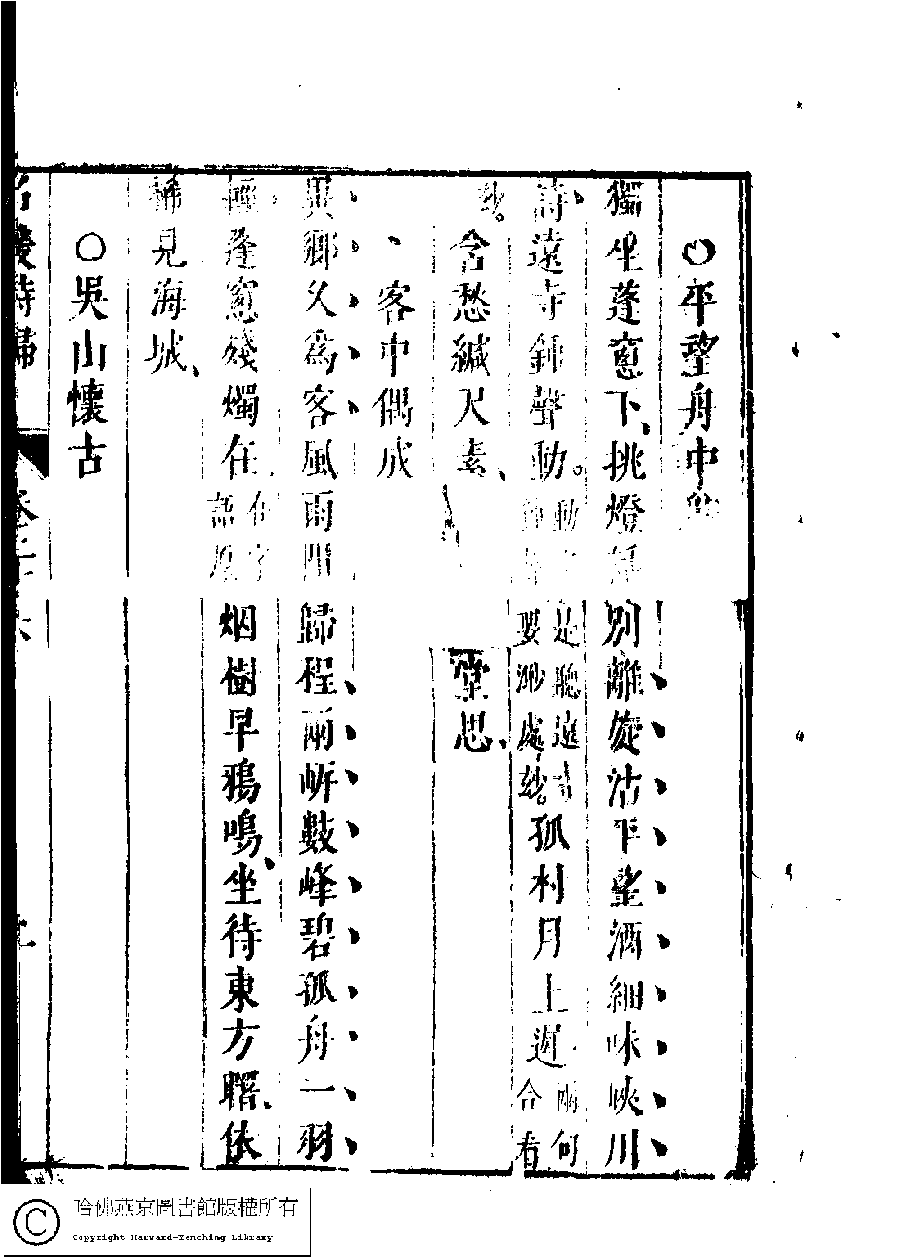 ○平望舟中
獨坐蓬窻下挑燈話別離旋沽平望酒細味峽川
詩遠寺鐘聲動動字是聽遠寺鐘聲要渺處妙孤村月上遲兩句合看
妙含愁緘尺素堂思
客中偶成
異鄉久爲客風雨阻歸程兩岍數峰碧孤舟一羽
輕蓬窻殘燭在在字語原烟樹早鴉鳴坐待東方曙依
稀見海城
○吳山懷古
名媛詩歸
卷二十六
九
哈佛燕京圖書館版權所有
Copyright Harvard-Yenching Library